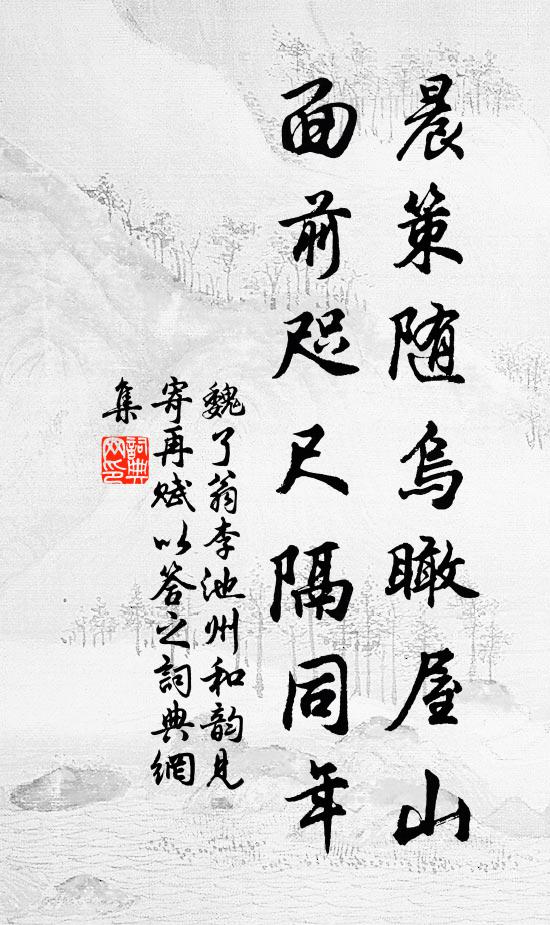 晨策随烏瞰屋山
面前咫尺隔同年
魏了翁李池州和韵見
寄再赋以答之詞典網
集
詞典网印